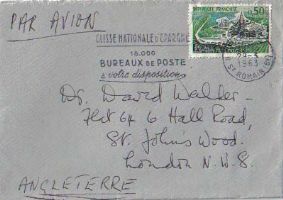 PAR AVION
CAISSE NATIONALE D'EPARGNE
18.000
BUREAUX DE POSTE
à votre disposition
REPUBLIQUE FRANÇAISE
0,50
1963
ST ROMAIN
Dr. David Walker
Flat 64 6 Hall Road,
St. John's Wood.
London N.W.8.
ANGLETERRE